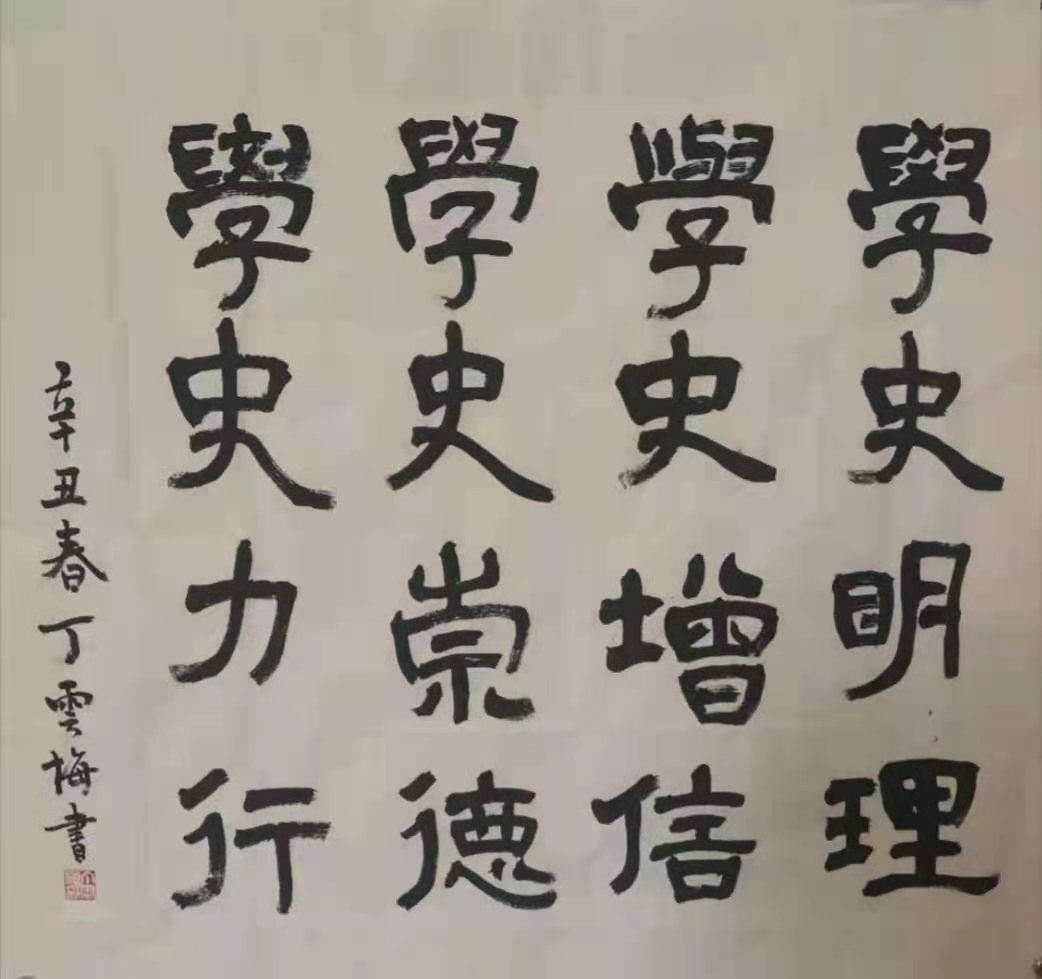 學史明理
學史增信
學史崇德
學史力行
辛丑春丁雲梅書